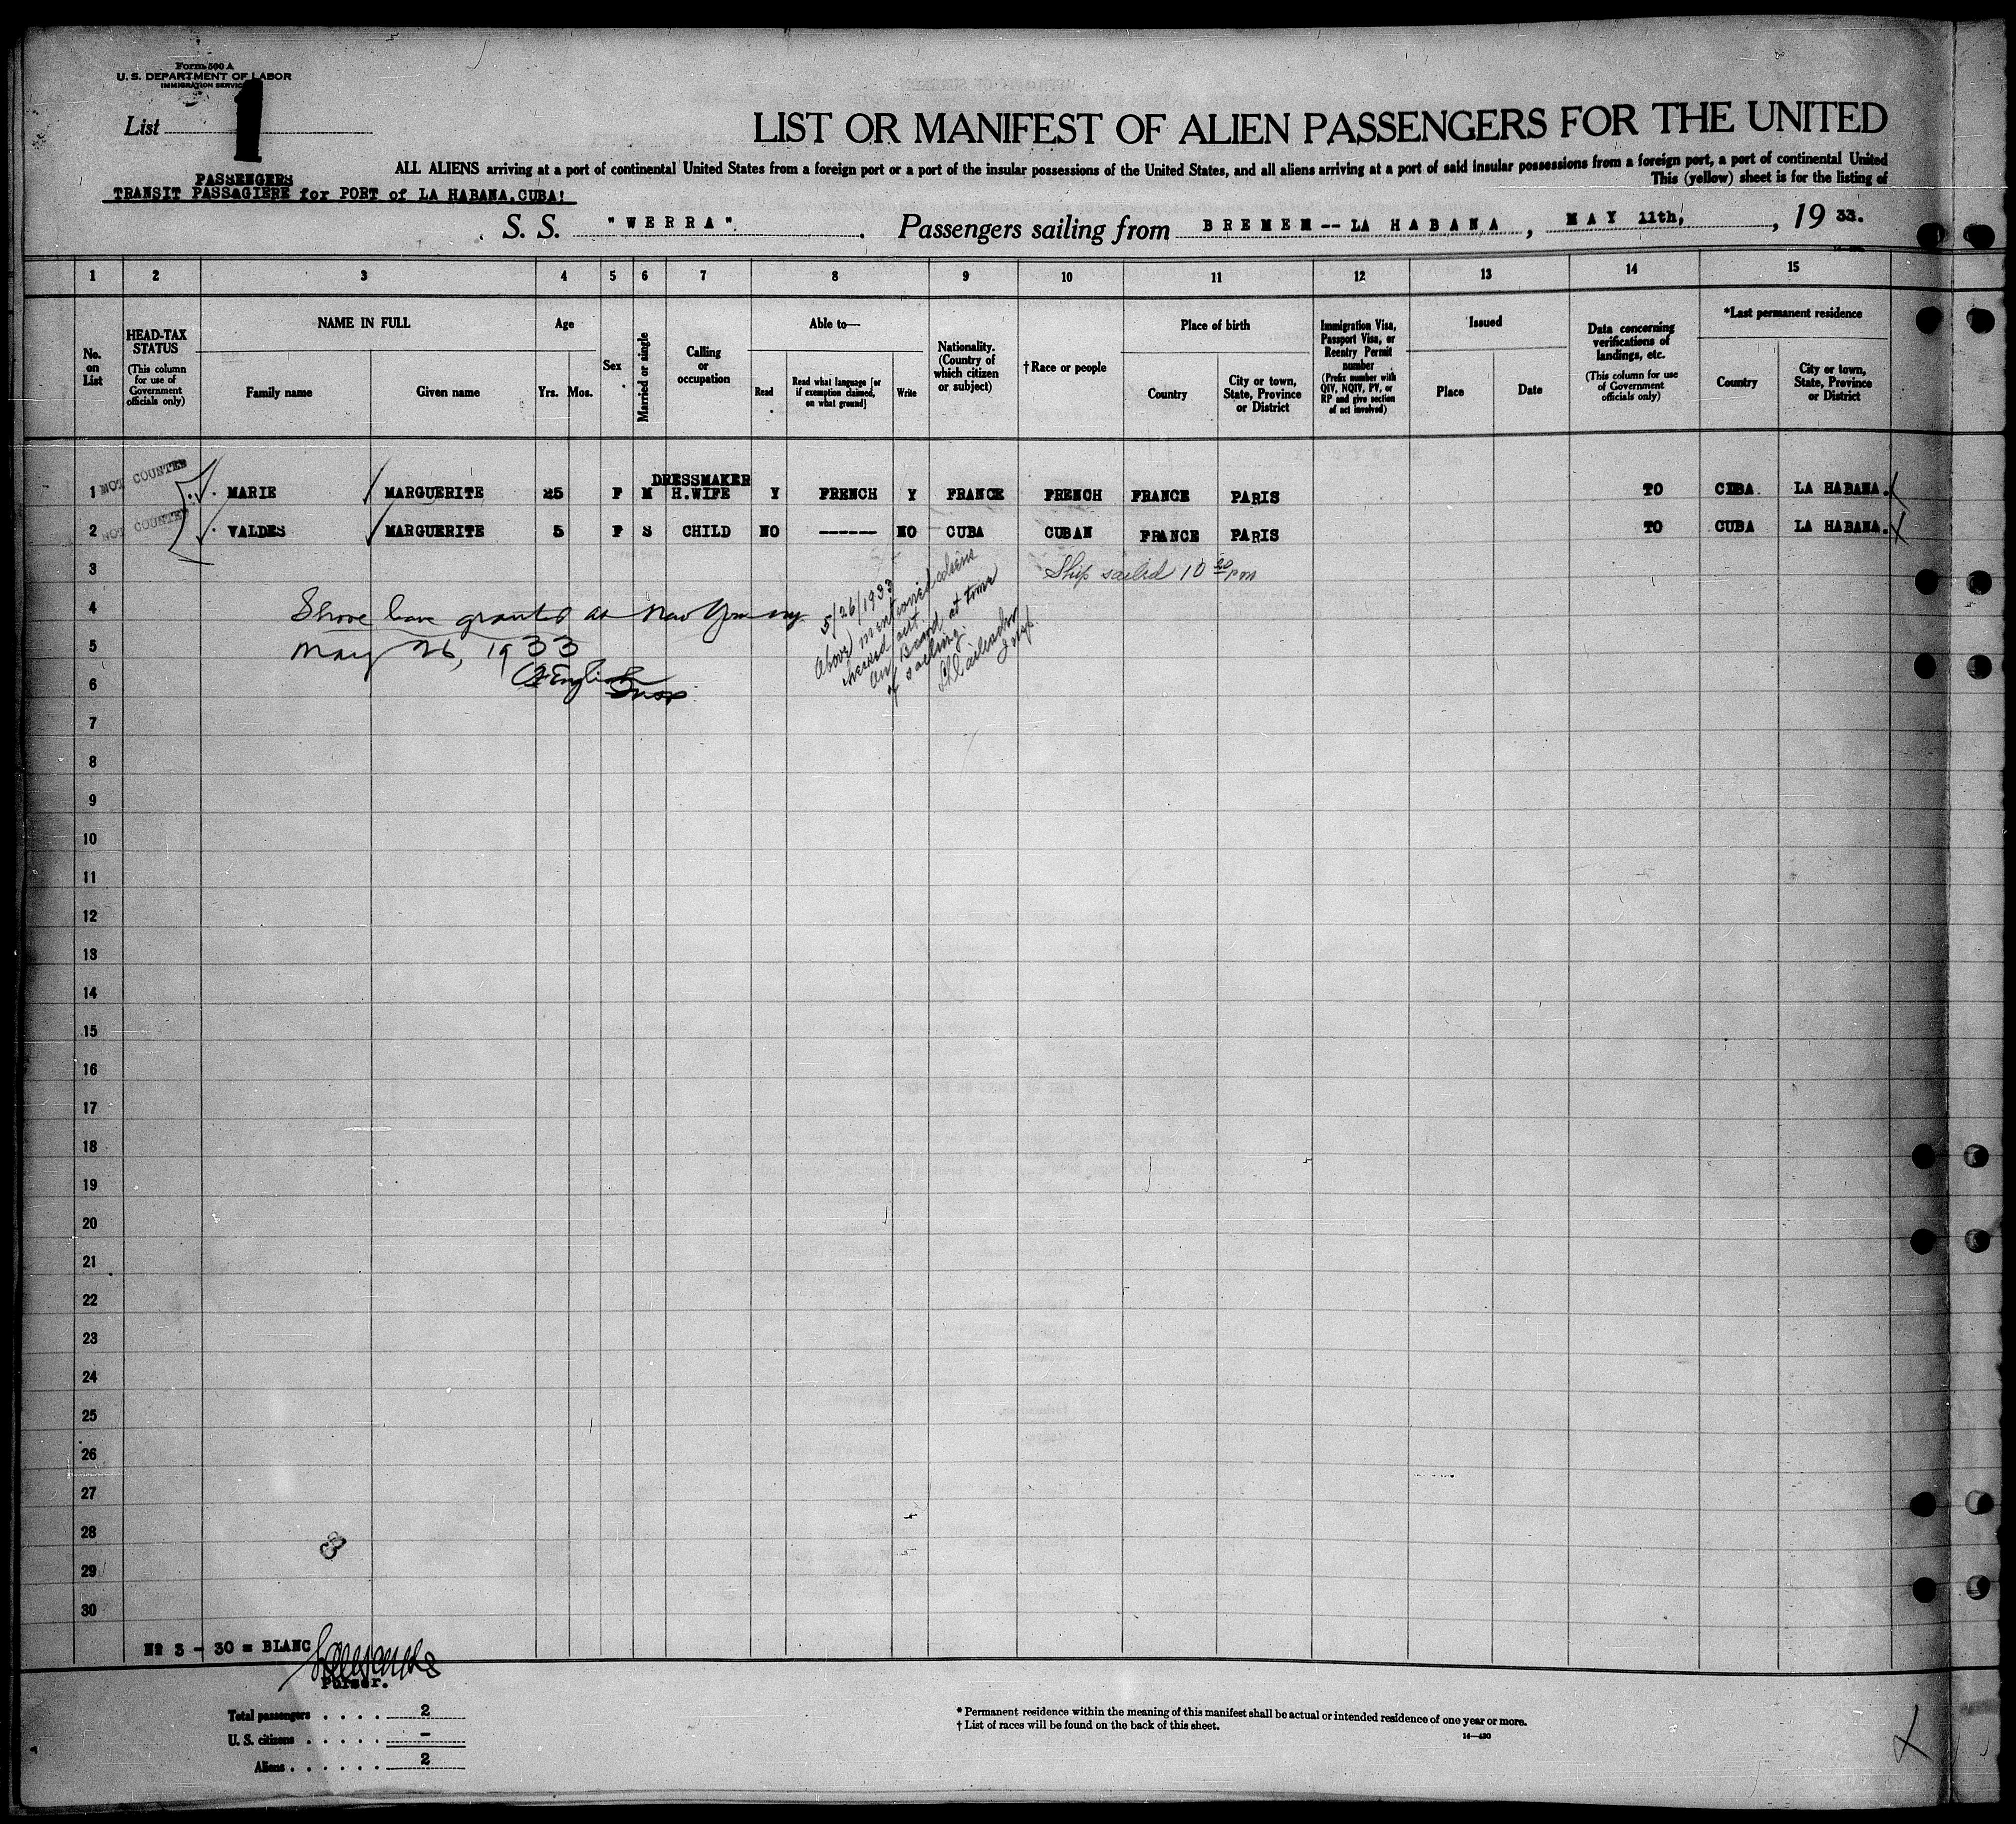 Form 500 A
U. S. DEPARTMENT OF LABOR
IMMIGRATION SERVICE
List 1
LIST OR MANIFEST OF ALIEN PASSENGERS FOR THE UNITED
ALL ALIENS arriving at a port of continental United States from a foreign port or a port of the insular possessions of the United States, and all aliens arriving at a port of said insular possessions from a foreign port, a port of continental United
This (yellow) sheet is for the listing of
PASSENGERS
TRANSIT PASSAGIERE for PORT of LA HABANA.CUBA!
S. S. "WERRA". Passengers sailing from BREMEN--LA HABANA, MAY 11th, , 19 33.
1 2 3 4 5 6 7 8 9 10 11 12 13 14 15
No. on List
HEAD-TAX STATUS (This column for use of Government officials only)
NAME IN FULL
Family name
Given name
Age
Yrs. Mos.
Sex
Married or single
Calling or occupation
Able to—
Read
Read what language [or if exemption claimed, on what ground]
Write
Nationality. (Country of which citizen or subject)
†Race or people
Place of birth
Country
City or town, State, Province or District
Immigration Visa, Passport Visa, or Reentry Permit number (Prefix number with QIV, NQIV, PV, or RP and give section of act involved)
Issued
Place
Date
Data concerning verifications of landings, etc. (This column for use of Government officials only)
*Last permanent residence
Country
City or town, State, Province or District
NOT COUNTED
DRESSMAKER
1 MARIE MARGUERITE 25 F M H.WIFE Y FRENCH Y FRANCE FRENCH FRANCE PARIS TO CUBA. LA HABANA.
NOT COUNTED
2 VALDES MARGUERITE 5 F S CHILD NO ------ NO CUBA CUBAN FRANCE PARIS TO CUBA LA HABANA.
3
Ship sailed 10 30 pm
4
Shore leave granted at New York ny
5
May 26, 1933
6
English Insp
5/26/1933
Above mentioned aliens
checked out
on Board at time
of sailing.
Insp.
7
8
9
10
11
12
13
14
15
16
17
18
19
20
21
22
23
24
25
26
27
28
29
30
№ 3 - 30 = BLANC
Purser.
Total passengers . . . . 2
U. S. citizens . . . . . –
Aliens . . . . . . 2
* Permanent residence within the meaning of this manifest shall be actual or intended residence of one year or more.
† List of races will be found on the back of this sheet.
14—430